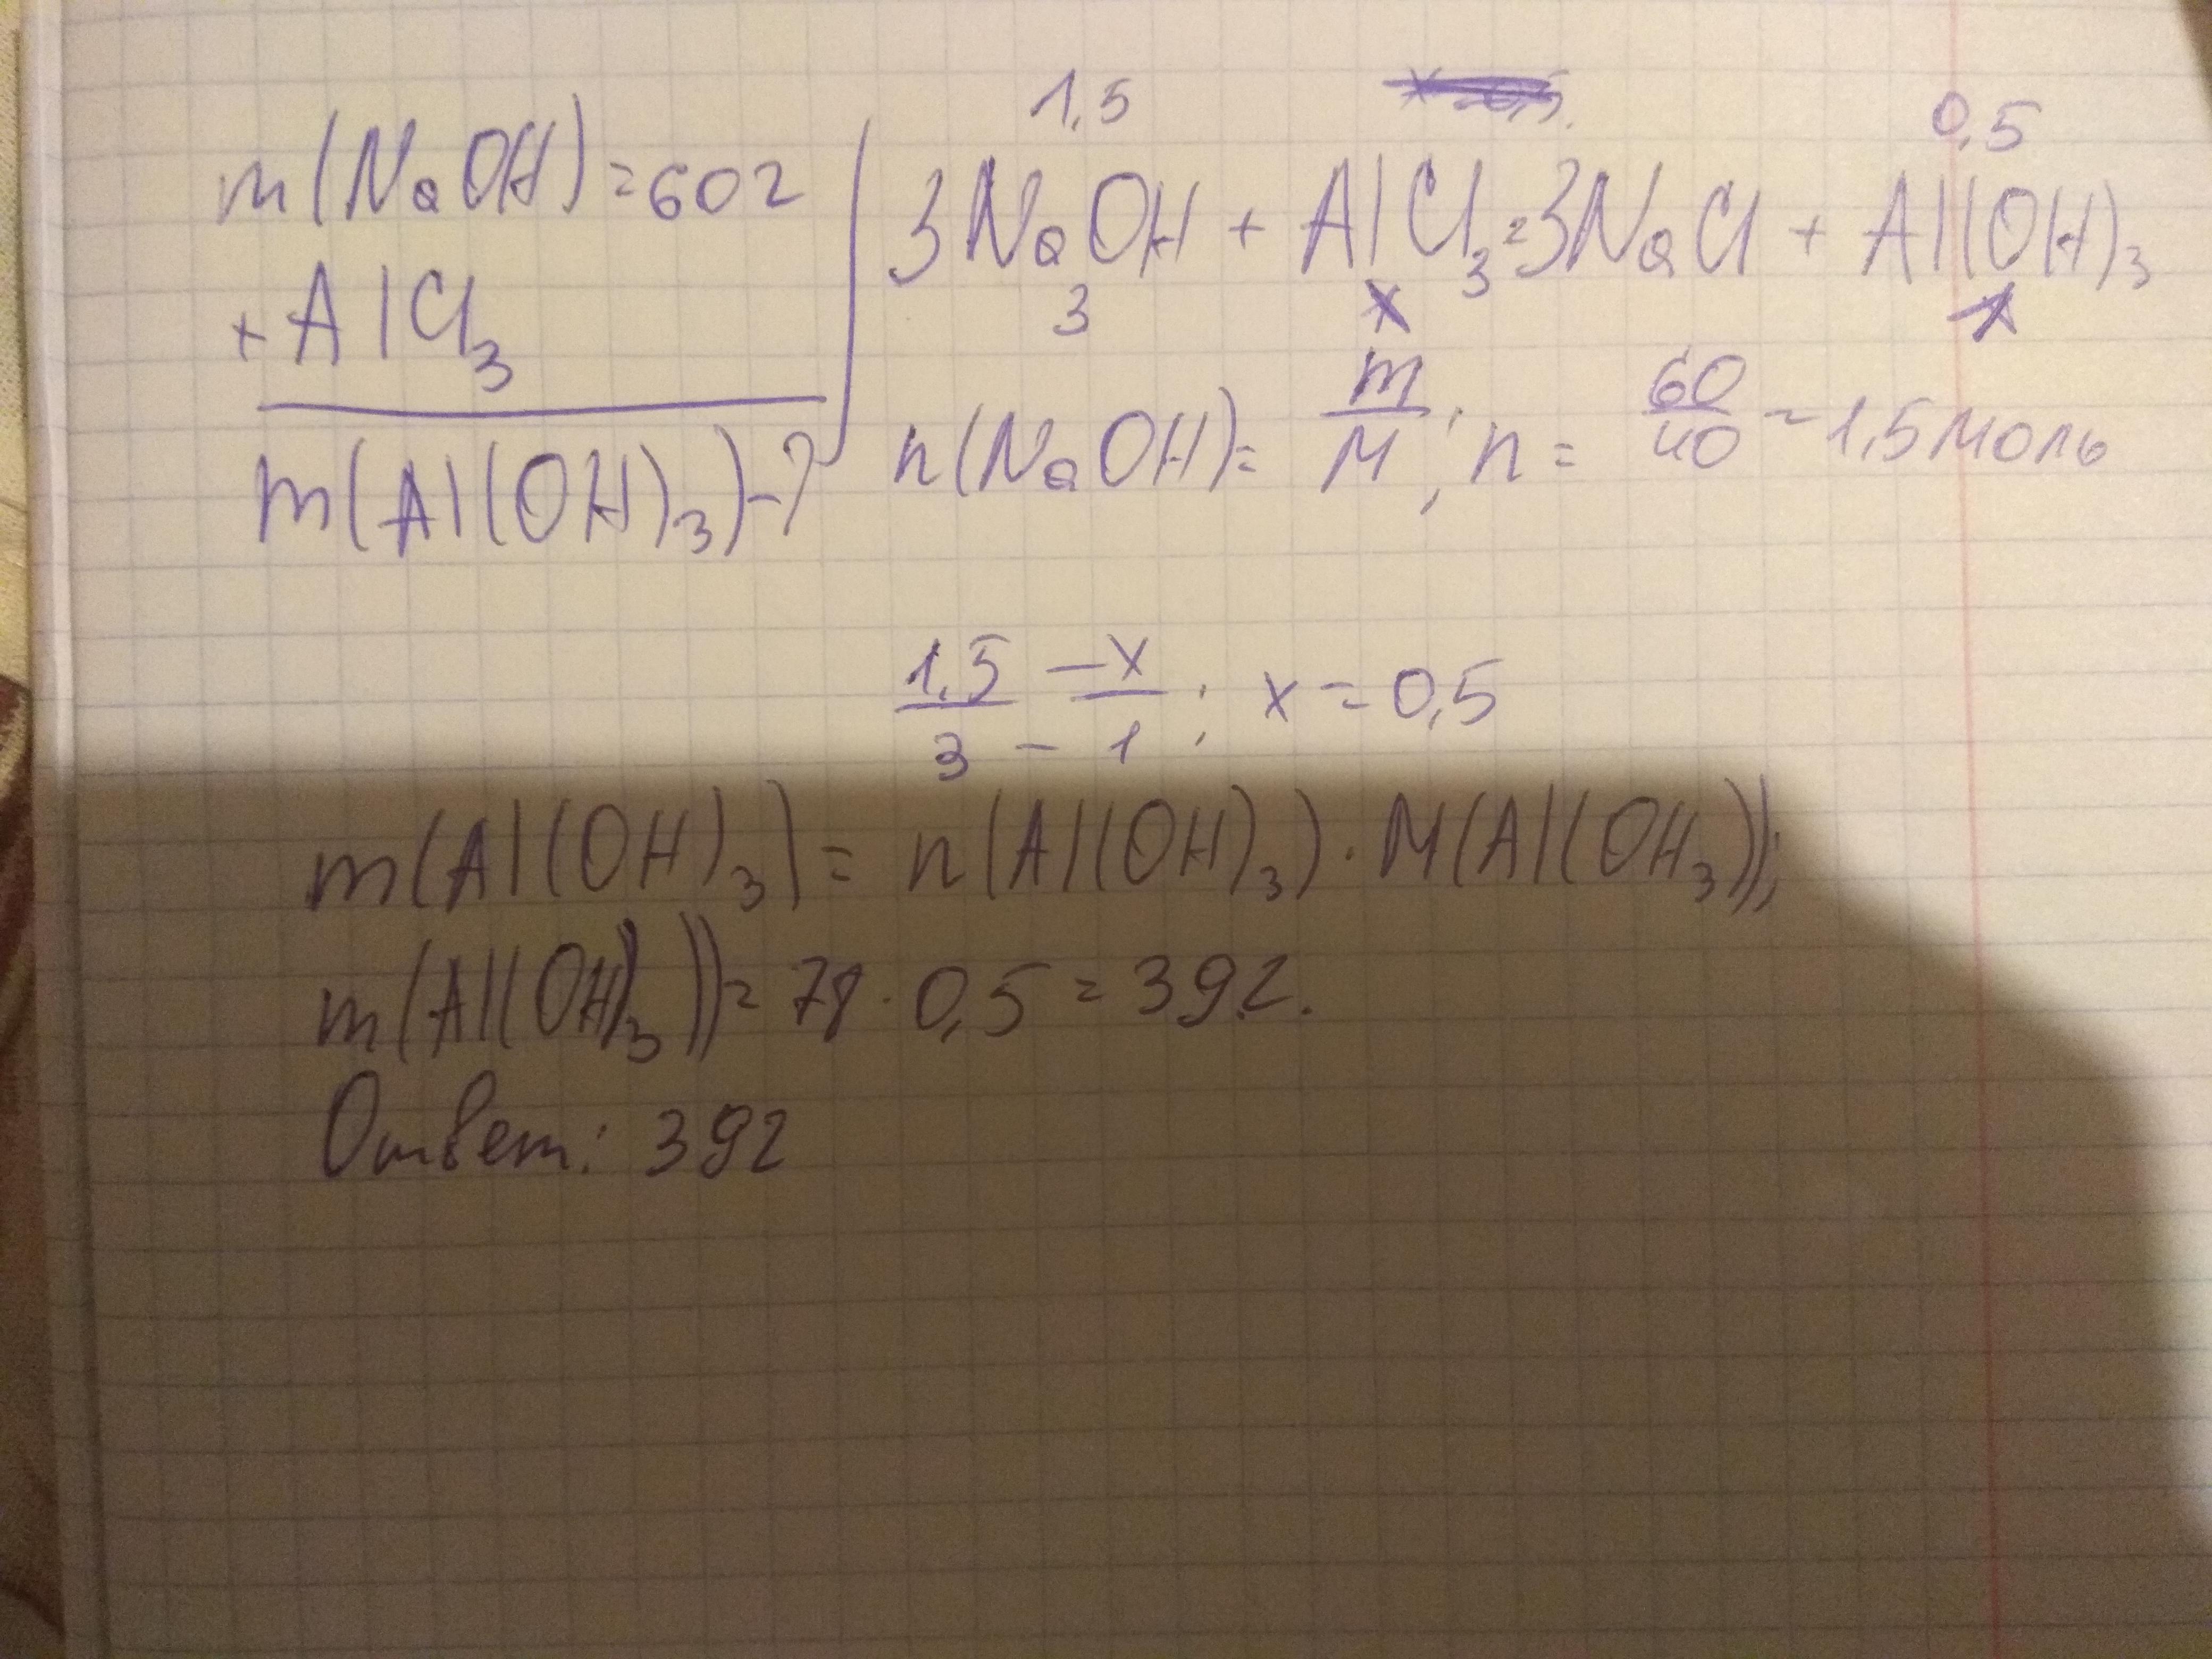 m(NaOH)=60г
+AlCl3
m(Al(OH)3)-?
1,5 0,5
3NaOH + AlCl3=3NaCl + Al(OH)3
3 x 1
n(NaOH)= m/M; n = 60/40 = 1,5 моль
1,5/3 - x/1; x = 0,5
m(Al(OH)3)= n(Al(OH)3)·M(Al(OH3));
m(Al(OH)3))= 78·0,5 = 39г.
Ответ: 39г